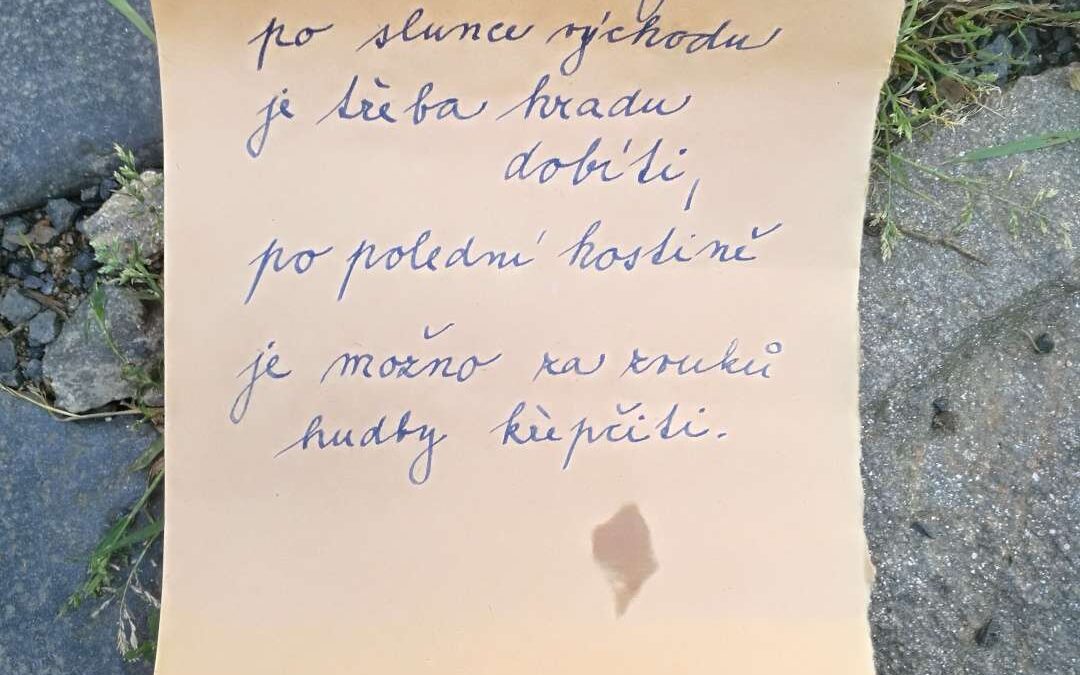 po slunce východu
je třeba hradu
dobíti,
po polední hostině
je možno za zvuků
hudby křepčiti.